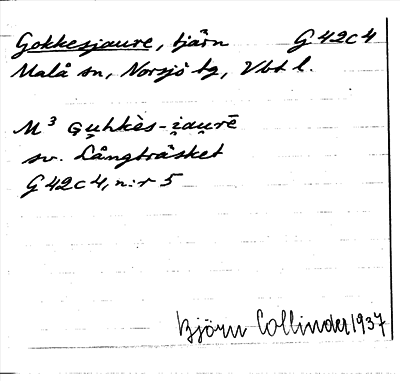 Gokkesjaure, tjärn G 42c4
Malå sn, Norsjö tg, Vbt l.
M³ Guhkès-i̯aurē
sv. Långträsket
G 42c4, n:r 5
Björn Collinder 1937